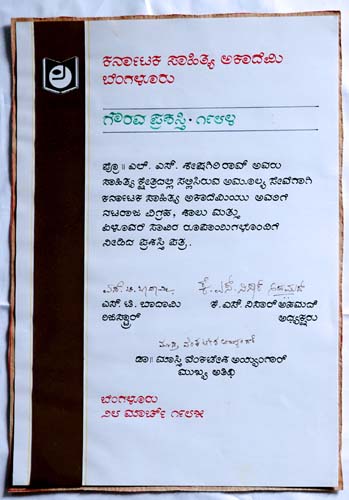 ಕರ್ನಾಟಕ ಸಾಹಿತ್ಯ ಅಕಾಡೆಮಿ
ಬೆಂಗಳೂರು
ಗೌರವ ಪ್ರಶಸ್ತಿ · ೧೯೮೪
ಪ್ರೊ॥ ಎಲ್. ಎಸ್. ಶೇಷಗಿರಿ ರಾವ್ ಅವರು
ಸಾಹಿತ್ಯ ಕ್ಷೇತ್ರದಲ್ಲಿ ಸಲ್ಲಿಸಿರುವ ಅಮೂಲ್ಯ ಸೇವೆಗಾಗಿ
ಕರ್ನಾಟಕ ಸಾಹಿತ್ಯ ಅಕಾಡೆಮಿಯು ಅವರಿಗೆ
ನಟರಾಜ ವಿಗ್ರಹ, ಶಾಲು ಮತ್ತು
ಏಳೂವರೆ ಸಾವಿರ ರೂಪಾಯಿಗಳೊಂದಿಗೆ
ನೀಡಿದ ಪ್ರಶಸ್ತಿ ಪತ್ರ.
ಎಸ್. ಟಿ. ಬಾದಾಮಿ ಕೆ. ಎಸ್. ನಿಸಾರ್ ಅಹಮದ್
ಎಸ್. ಟಿ. ಬಾದಾಮಿ ಕೆ. ಎಸ್. ನಿಸಾರ್ ಅಹಮದ್
ರಿಜಿಸ್ಟ್ರಾರ್ ಅಧ್ಯಕ್ಷರು
ಡಾ॥ ಮಾಸ್ತಿ ವೆಂಕಟೇಶ ಅಯ್ಯಂಗಾರ್
ಮುಖ್ಯ ಅತಿಥಿ
ಬೆಂಗಳೂರು
೨೮ ಮಾರ್ಚ್ ೧೯೮೫